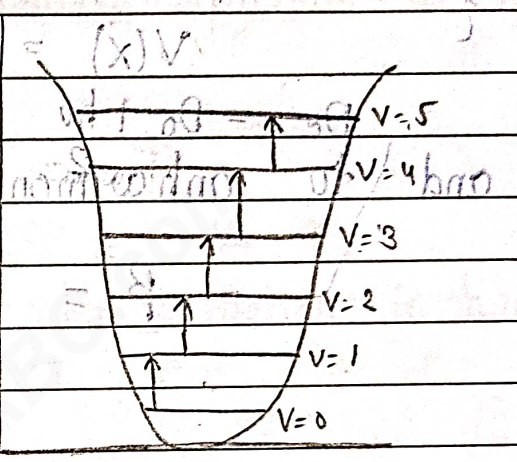 V=5
V=4
V=3
V=2
V=1
V=0